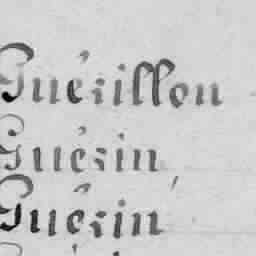 Guérillon
Guérin
Guérin